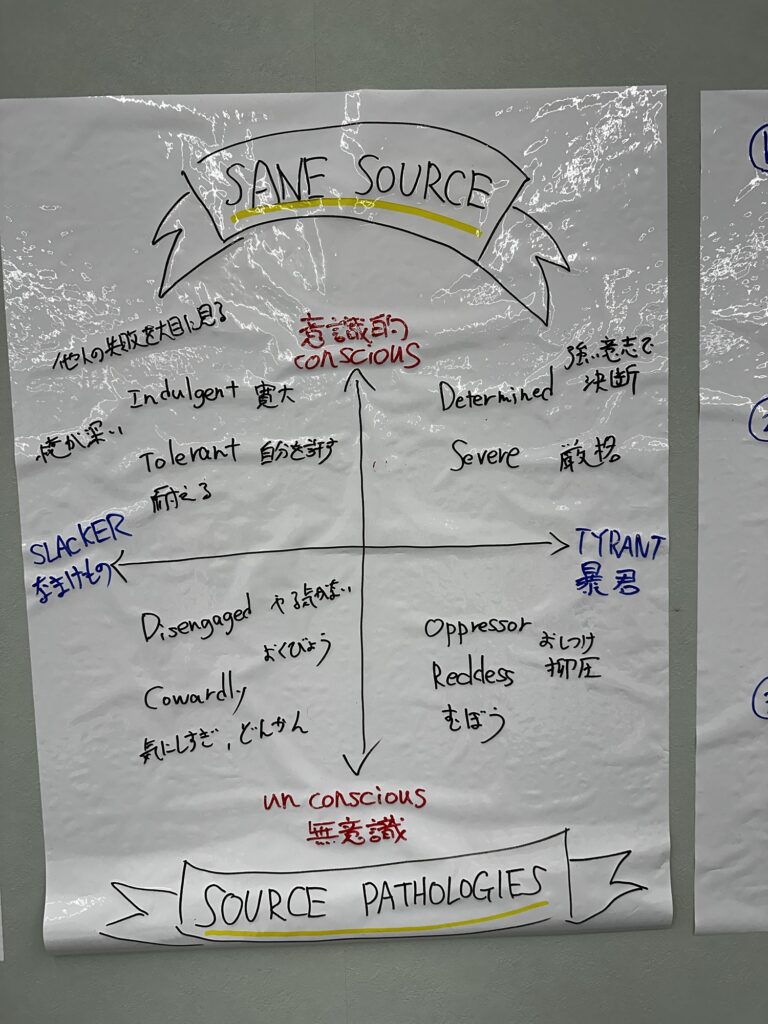 SANE SOURCE
意識的
conscious
他人の失敗を大目に見る
Indulgent 寛大
懐が深い
Tolerant 自分を許す
耐える
Determined 強い意志で
決断
Severe 厳格
SLACKER
なまけもの
TYRANT
暴君
Disengaged やる気がない
おくびょう
Cowardly
気にしすぎ,どんかん
Oppressor おしつけ
抑圧
Reddess
むぼう
un conscious
無意識
SOURCE PATHOLOGIES